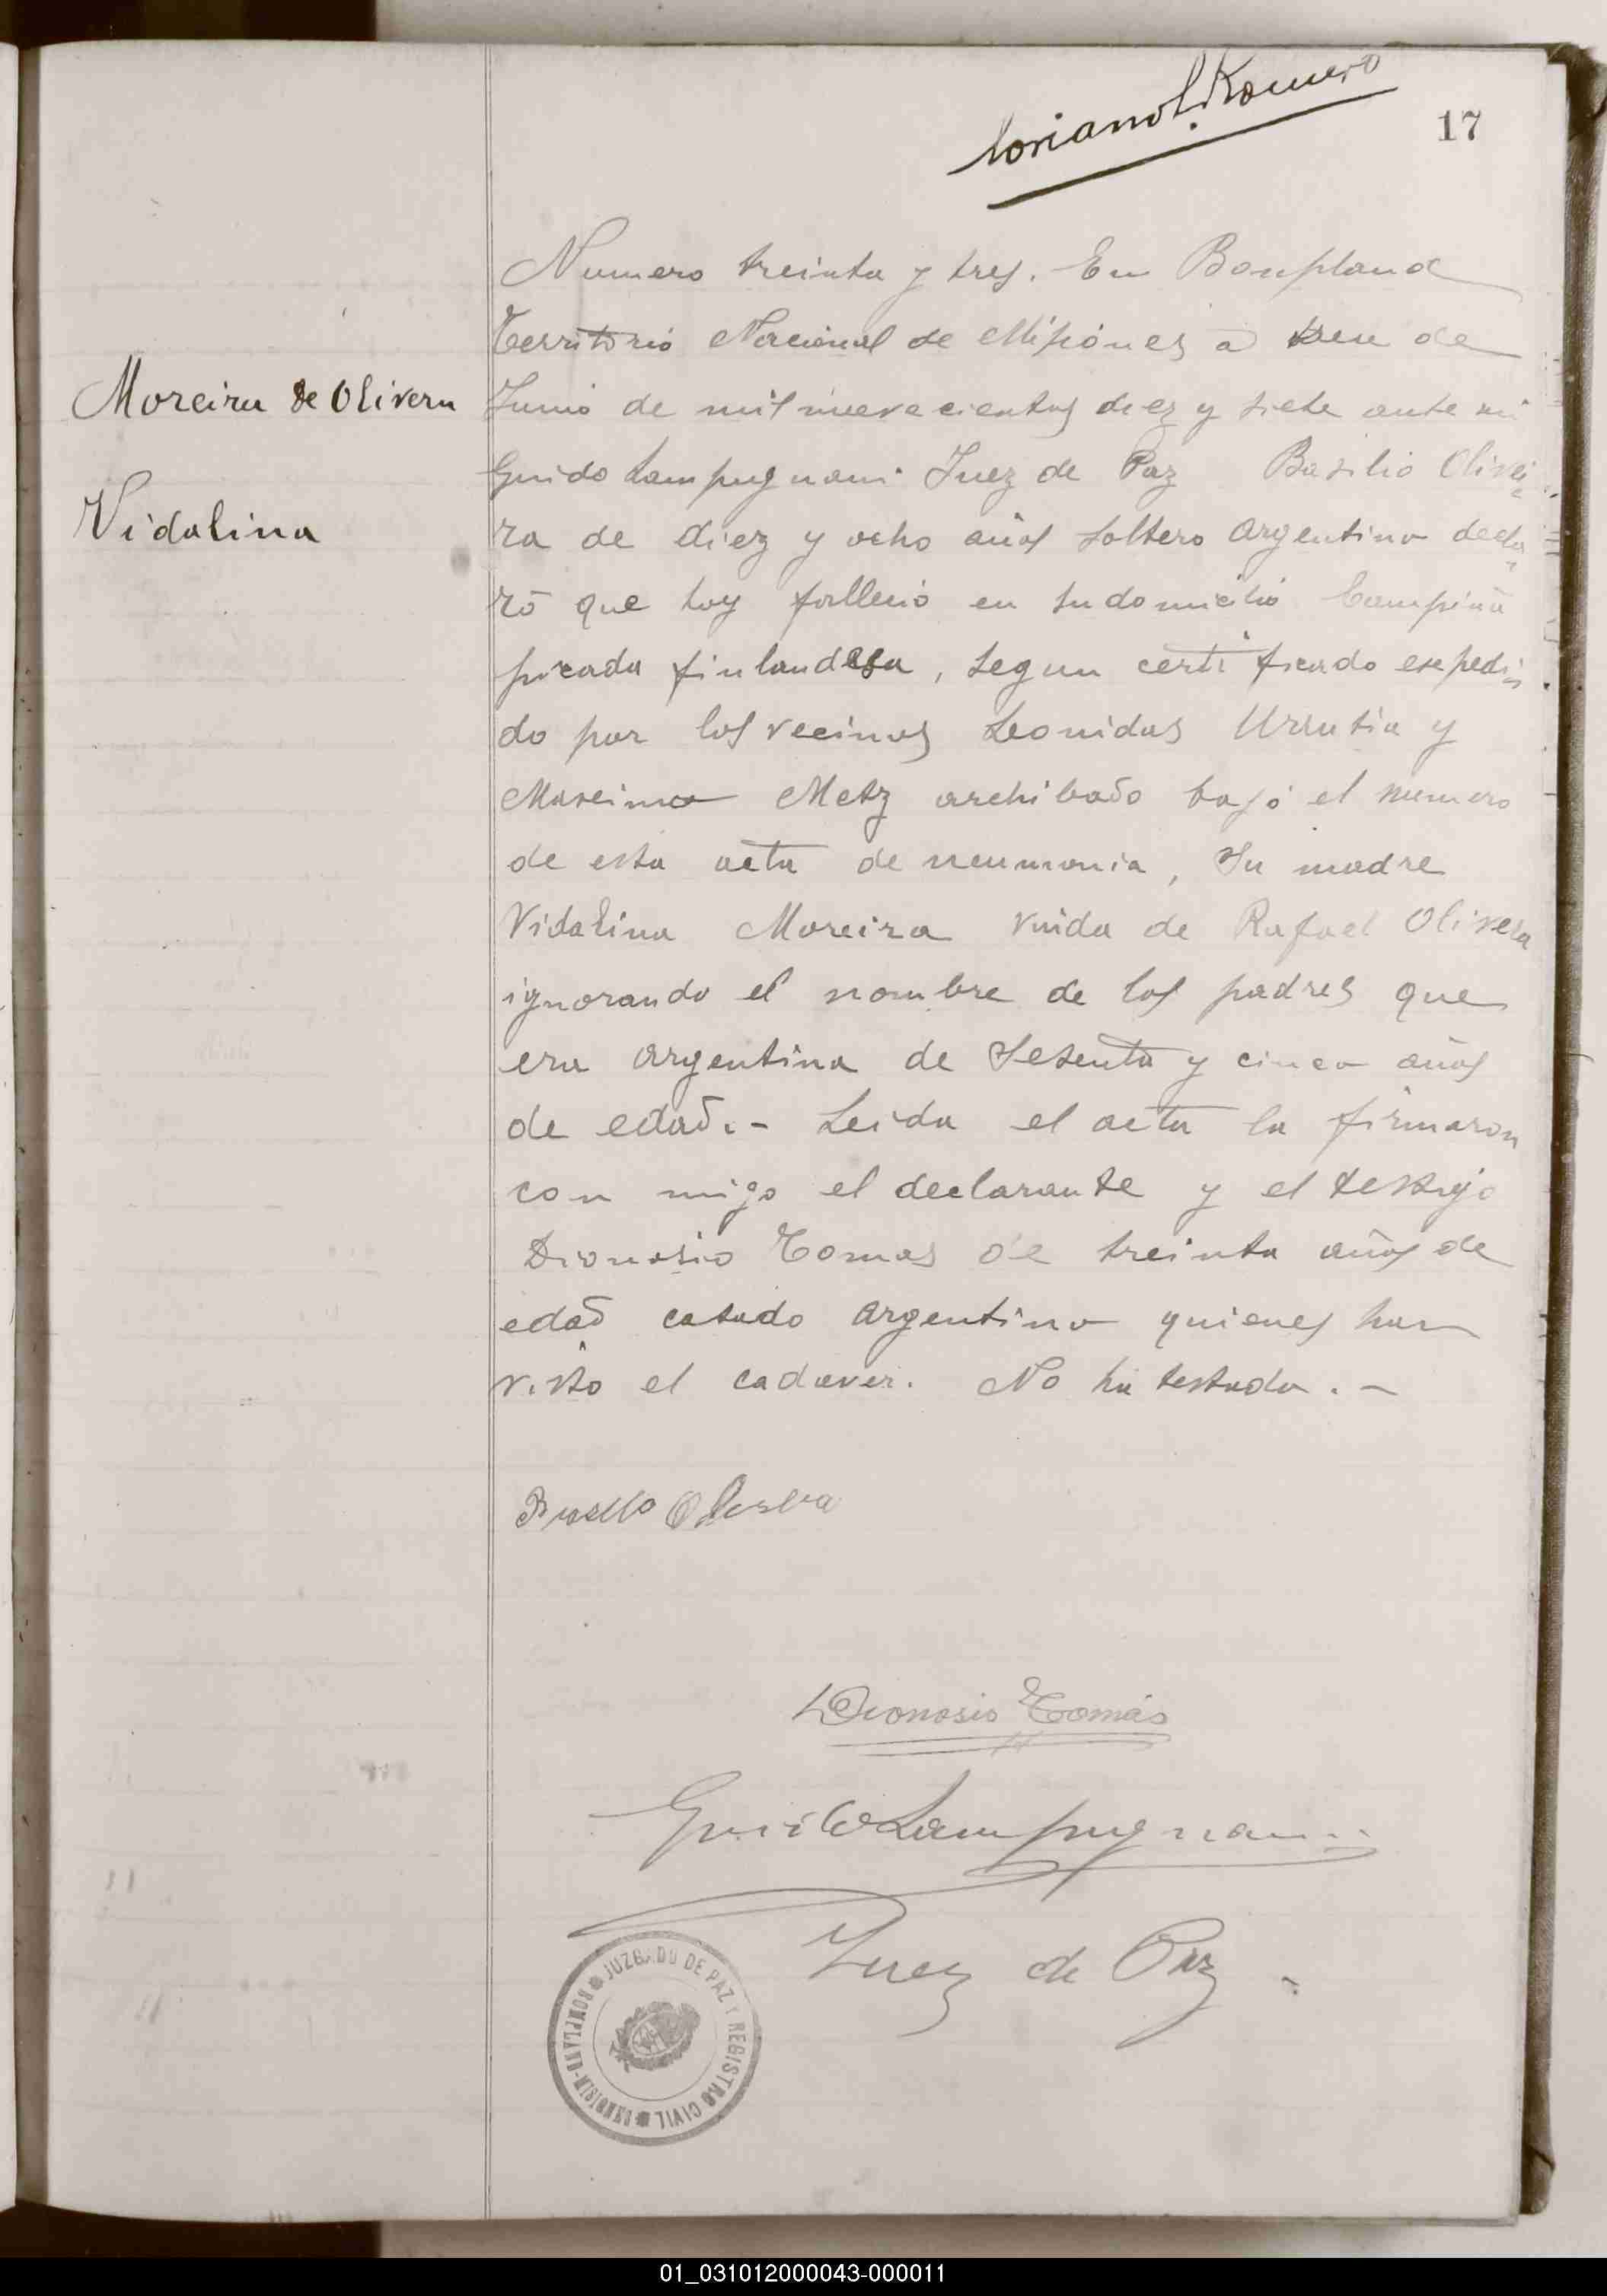 Soriano L. Romero
17
Numero treinta y tres. En Bonpland
Territorio Nacional de Misiones a de
Moreira de Olivera
Junio de mil nuevecientos diez y siete ante mi
Guido Lampugnani Juez de Paz Basilio Olivei
Vidalina
ra de diez y ocho años soltero argentino decla
ró que hoy fallecio en su domicilio Campiña
picada finlandesa, segun certificado esepedi
do por los vecinos Leonidas Urrutia y
Maximo Metz archibado bajo el numero
de esta acta de neumonia, Su madre
Vidalina Moreira viuda de Rafael Olivera
ignorando el nombre de los padres que
era argentina de Sesenta y cinco años
de edad.- Leida el acta la firmaron
con migo el declarante y el testigo
Dionosio Tomas de treinta años de
edad casado argentino quienes han
visto el cadaver. No ha testado.-
Dionosio Tomás
Guido Lampugnani
Juez de Paz
JUZGADO DE PAZ Y REGISTRO CIVIL BOMPLAND-MISIONES
01_031012000043-000011